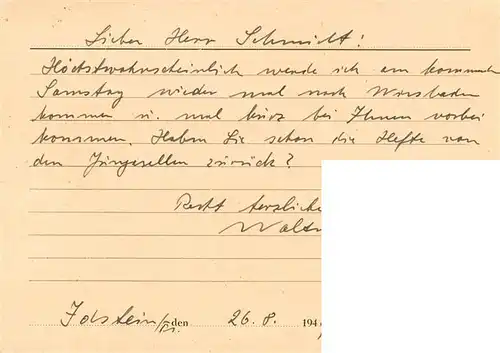 Lieber Herr Schmidt!
Höchstwahrscheinlich werde ich am kommend
Samstag wieder mal nach Wiesbaden
kommen u. mal kurz bei Ihnen vorbei
kommen. Haben Sie schon die Hefte von
den Junggesellen zurück?
Recht herzliche
Walt
Idstein/ den 26. 8. 194